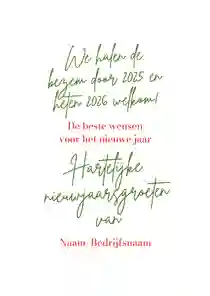 We halen de
bezem door 2025 en
heten 2026 welkom!
De beste wensen
voor het nieuwe jaar
Hartelijke
nieuwjaarsgroeten
van
Naam/Bedrijfsnaam